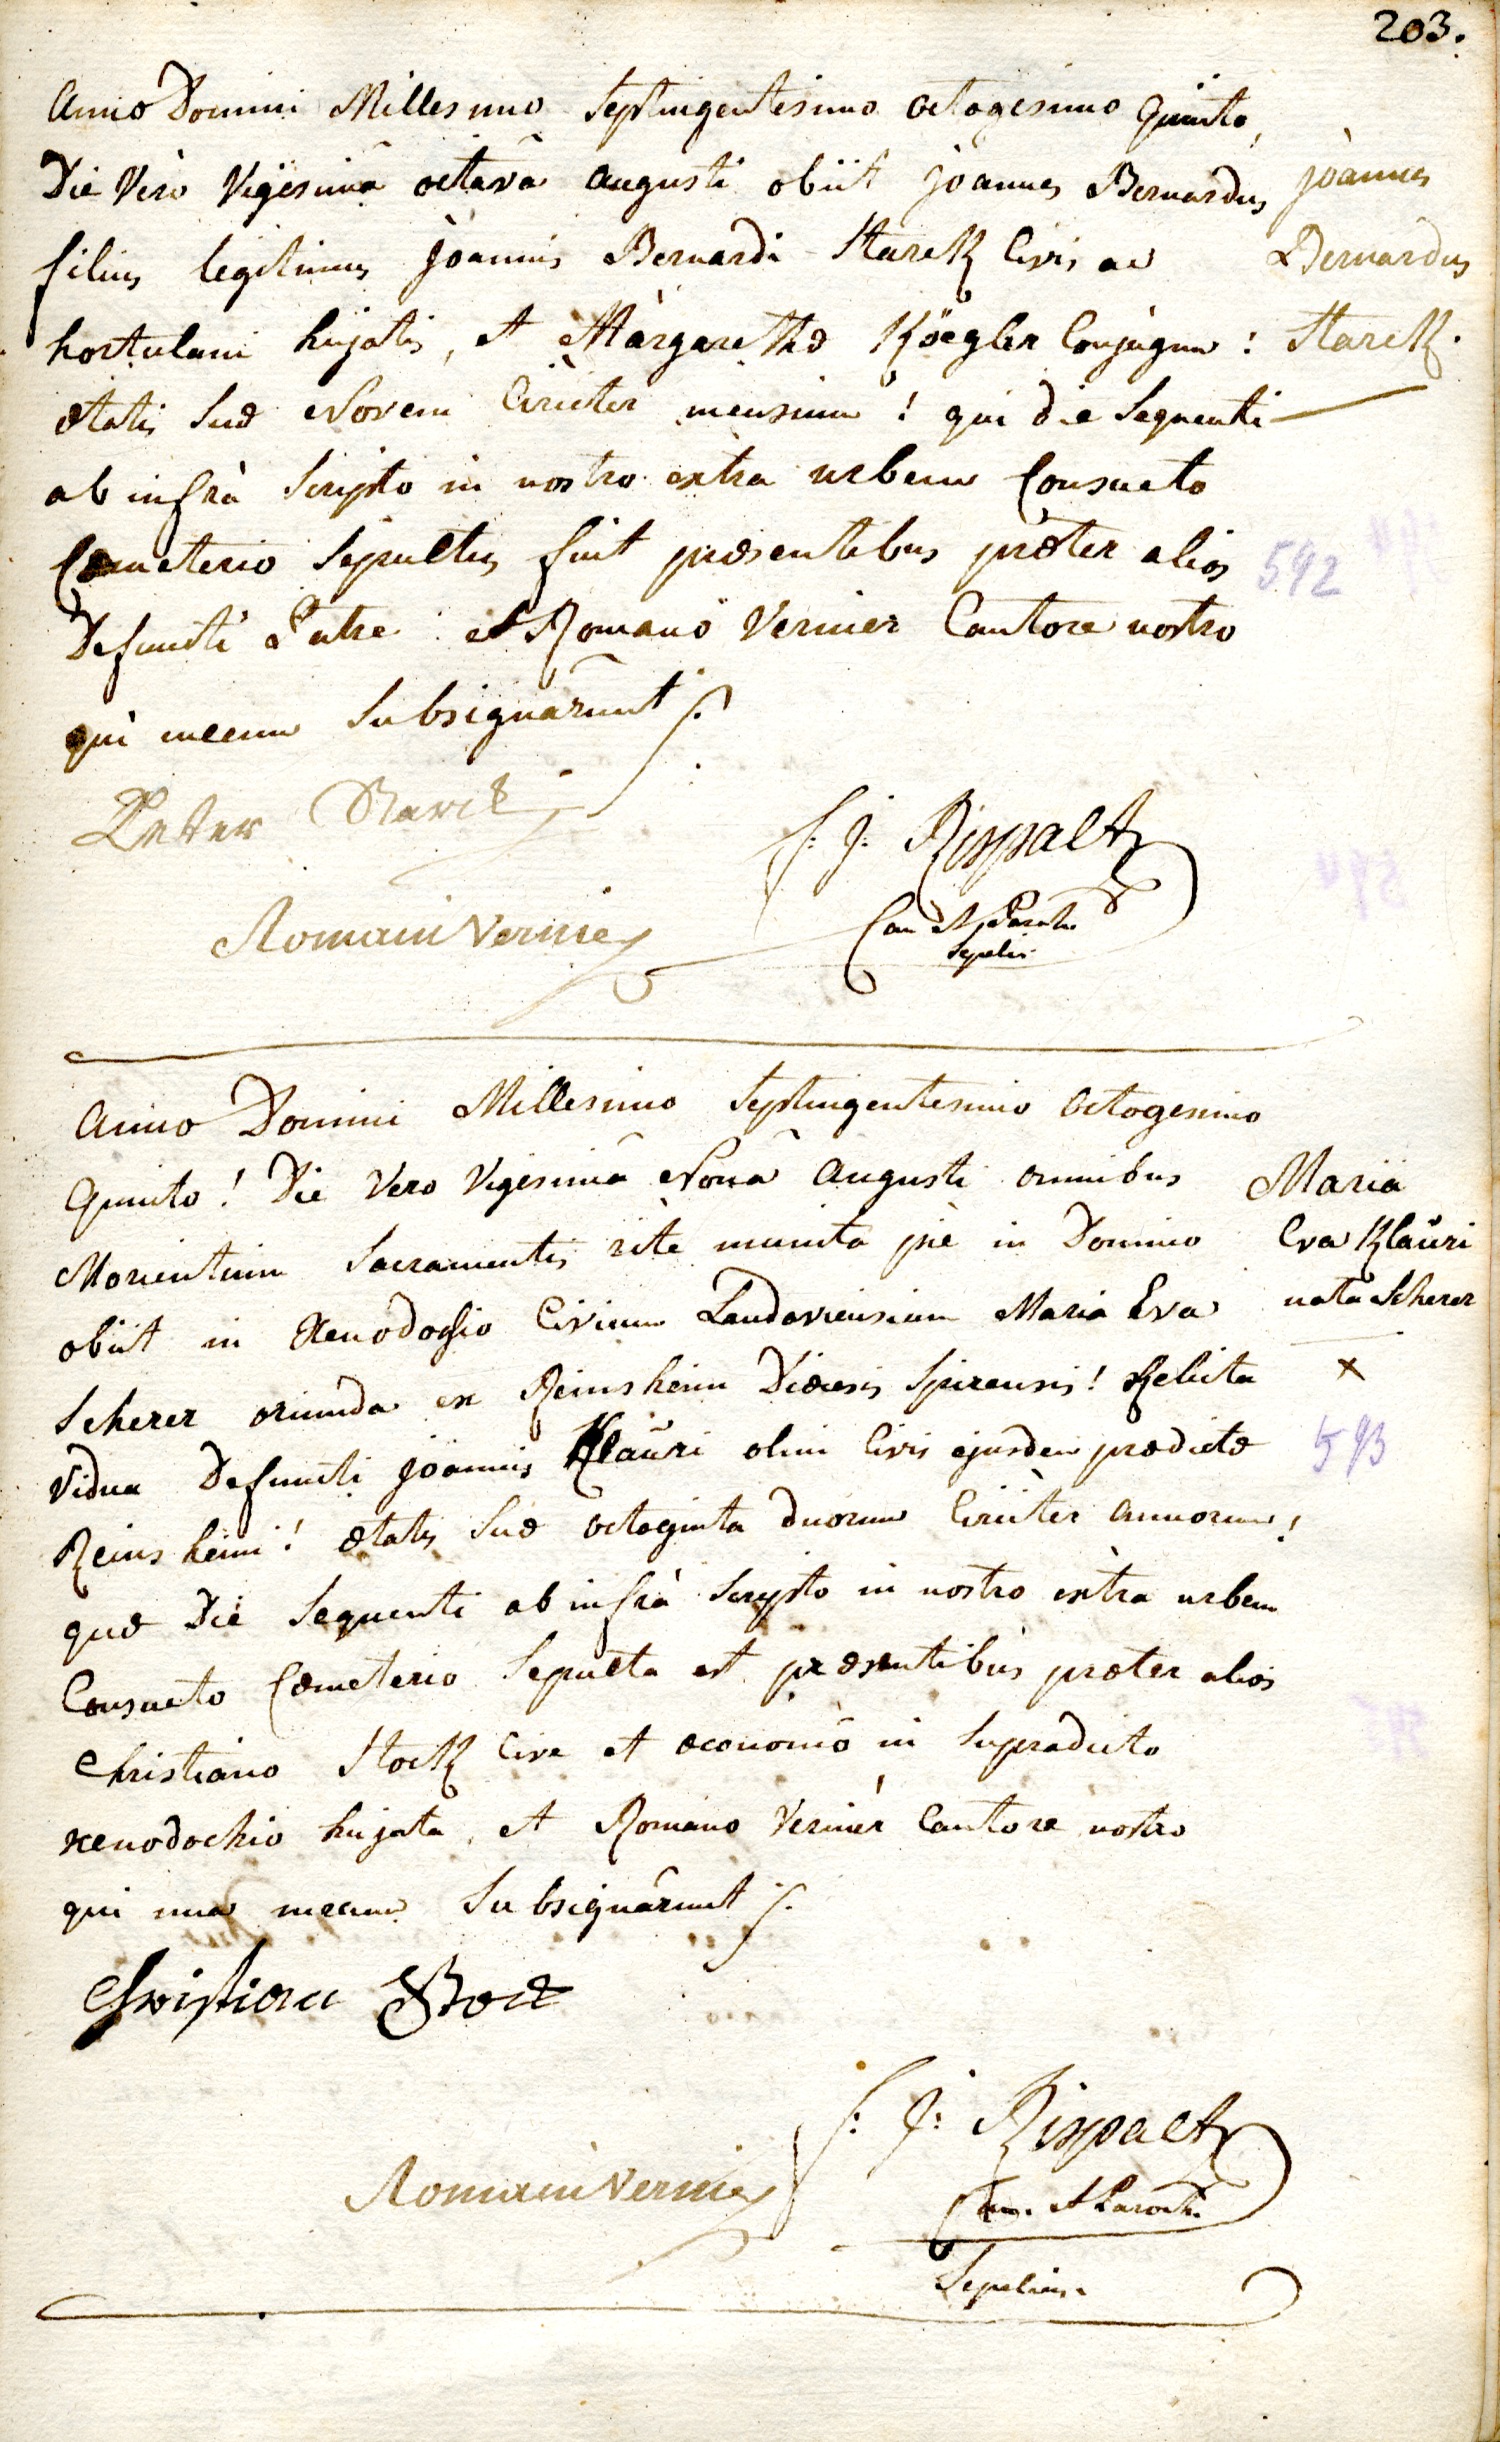 203.
Anno Domini Millesimo Septingentesimo octogesimo Quinto,
Die Verò Vigesimâ octavâ Augusti obiit Joannes Bernardus
filius legitimus Joannis Bernardi Starck Civis ac
hortulani hujatis, et Margarethæ Köegler Conjugum:
ætatis suæ Novem Circiter mensium! qui die Sequenti
ab infrà Scripto in nostro extra urbem Consueto
Cœmeterio Sepultus fuit præsentibus præter alios
Defuncti Patre et Romano Vernier Cantore nostro
qui mecum Subsignârunt
Joannes
Bernardus
Starck.
592
Peter Starck
F: J: Rispalt
Can et Paroch
Sepelii
Romain Vernier
Anno Domini Millesimo Septingentesimo Octogesimo
Quinto! Die Vero Vigesimâ Nonâ Augusti omnibus
Morientium Sacramentis ritè munita piè in Domino
obiit in Xenodochio Civium Landaviensium Maria Eva
Scherer oriunda ex Reinsheim Diœcesis Spirensis! Relicta
Vidua Defuncti Joannis Klaŭri olim Civis ejusdem prædictæ
Reinsheim! ætatis Suæ octoginta duorum Circiter annorum!
quæ Die Sequenti ab infrà Scripto in nostro extra urbem
Consueto Cœmeterio Sepulta est præsentibus præter alios
Christiano Stock Cive et œconomô in Supradicto
xenodochio hujate, et Romano Vernier Cantore nostro
qui una mecum Subsignârunt
Maria
Eva Klaŭri
nata Scherer
x
593
Christian Stock
F: J: Rispalt
Can. et Paroch.
Sepeliens.
Romain Vernier